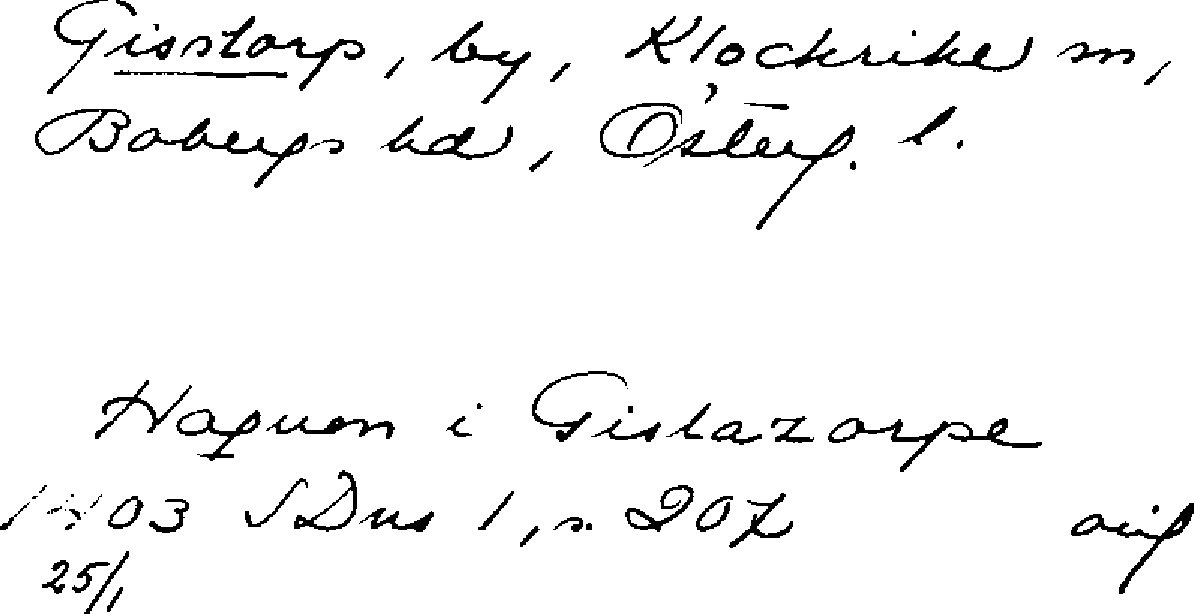 Gisstorp, by, Klockrike sn,
Bobergs hd, Österg. l.
Haquon i Gistazorpe
1403 SDns 1, s. 207 orig
25/1